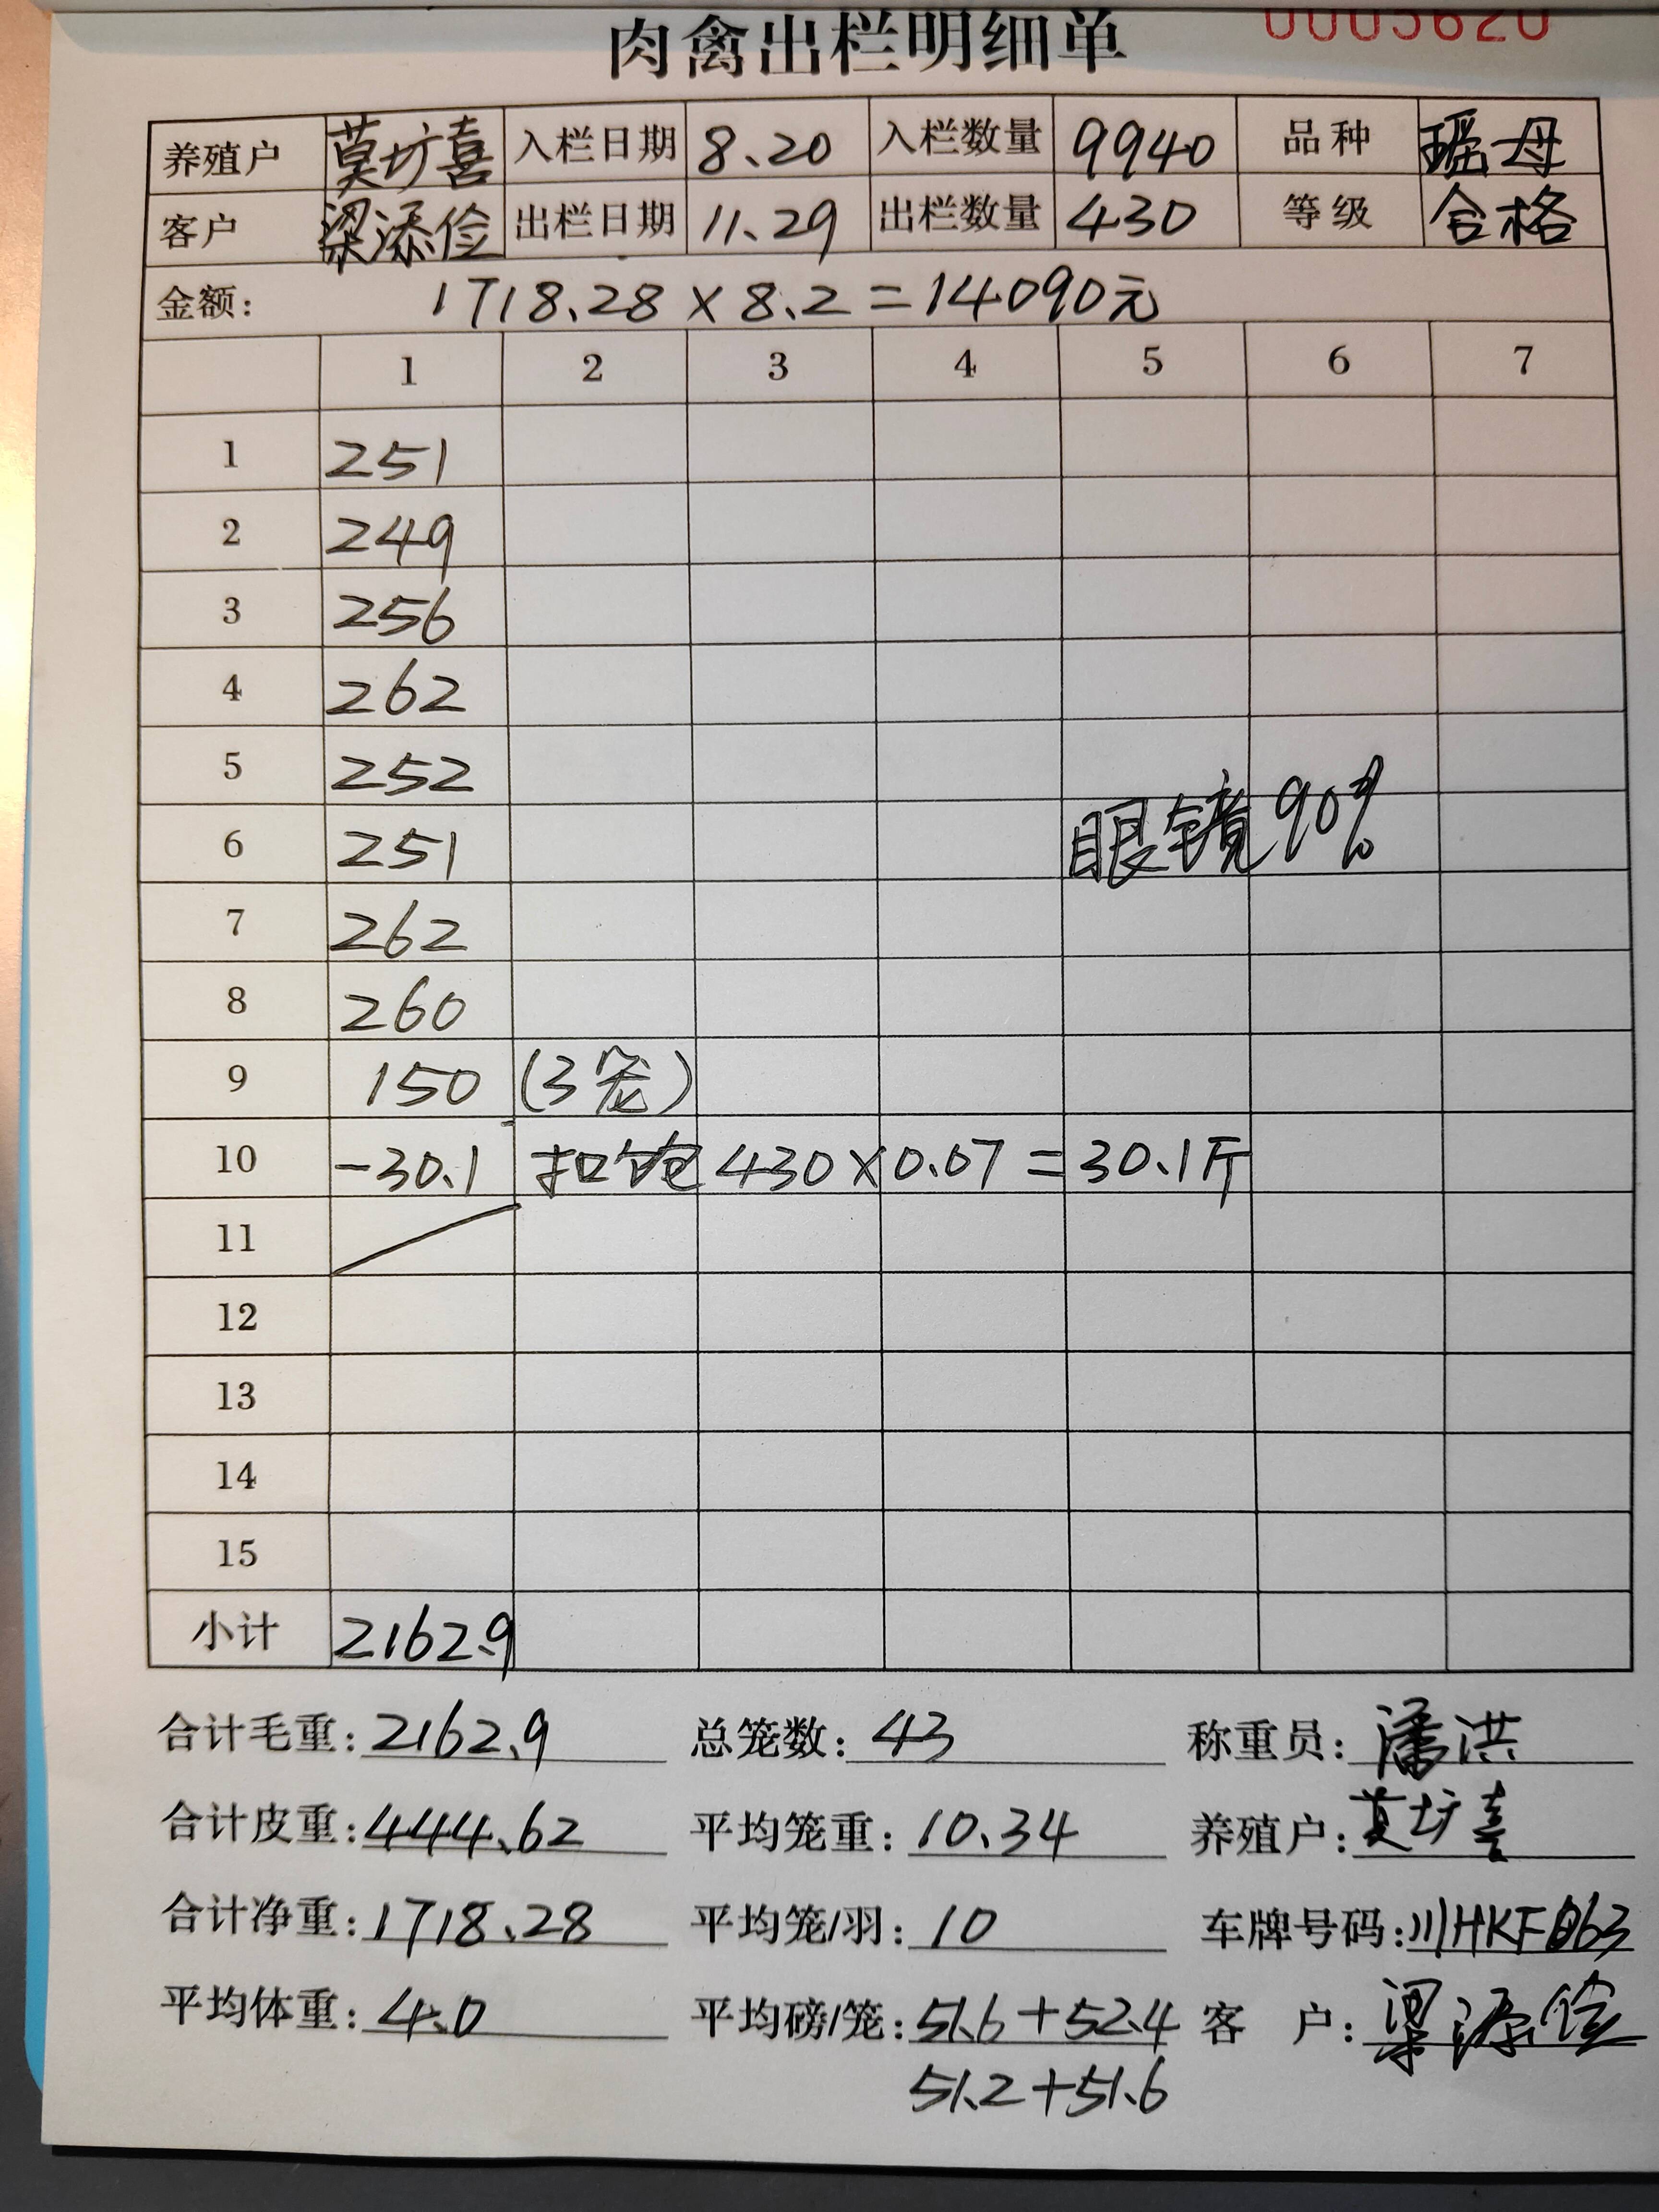 肉禽出栏明细单 0005620
养殖户 莫圹喜 入栏日期 8.20 入栏数量 9940 品种 瑶母
客户 梁添俭 出栏日期 11.29 出栏数量 430 等级 合格
金额: 1718.28 × 8.2 = 14090元
1 2 3 4 5 6 7
1 251
2 249
3 256
4 262
5 252
6 251 眼镜90%
7 262
8 260
9 150 (3笼)
10 -30.1 扣饱 430×0.07=30.1斤
11
12
13
14
15
小计 2162.9
合计毛重: 2162.9 总笼数: 43 称重员: 潘洪
合计皮重: 444.62 平均笼重: 10.34 养殖户: 莫圹喜
合计净重: 1718.28 平均笼/羽: 10 车牌号码:
平均体重: 4.0 平均磅/笼: 51.6+52.4 客 户: 梁添俭
51.2+51.6